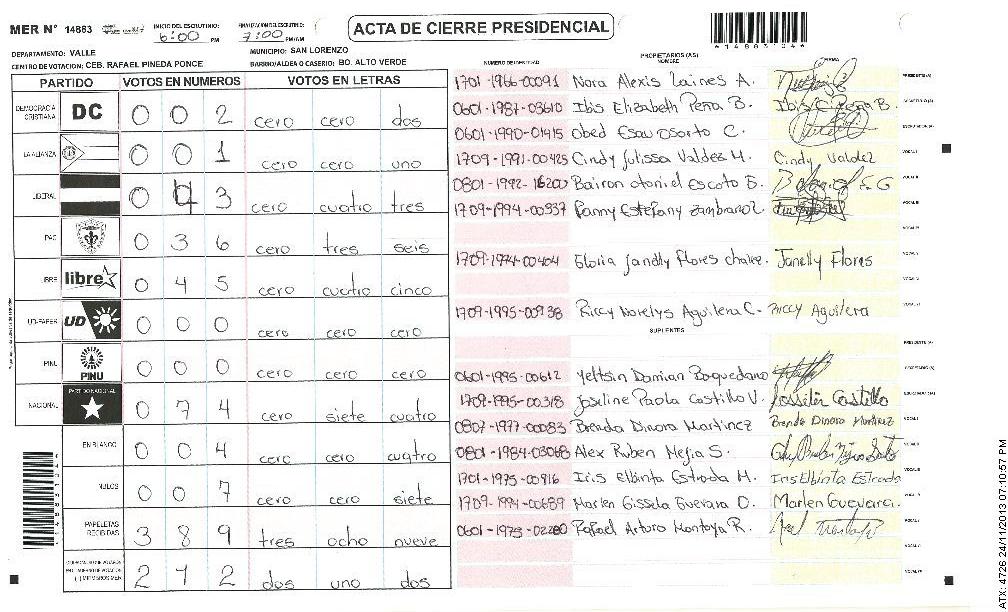 MER Nº 14883 INICIO DEL ESCRUTINIO: 6:00 PM FINALIZACION DEL ESCRUTINIO: 7:00 PM/AM ACTA DE CIERRE PRESIDENCIAL
DEPARTAMENTO: VALLE MUNICIPIO: SAN LORENZO
CENTRO DE VOTACION: CEB. RAFAEL PINEDA PONCE BARRIO/ALDEA O CASERIO: BO. ALTO VERDE
PARTIDO VOTOS EN NUMEROS VOTOS EN LETRAS
DEMOCRACIA CRISTIANA DC 0 0 2 cero cero dos
LA ALIANZA 0 0 1 cero cero uno
LIBERAL 0 4 3 cero cuatro tres
PAC 0 3 6 cero tres seis
LIBRE libre 0 4 5 cero cuatro cinco
UD-FAPER UD 0 0 0 cero cero cero
PINU PINU 0 0 0 cero cero cero
NACIONAL PARTIDO NACIONAL 0 7 4 cero siete cuatro
EN BLANCO 0 0 4 cero cero cuatro
NULOS 0 0 7 cero cero siete
PAPELETAS RECIBIDAS 3 8 9 tres ocho nueve
2 1 2 dos uno dos
NUMERO DE IDENTIDAD PROPIETARIOS (AS) NOMBRE FIRMA
1701-1966-00091 Nora Alexis Laines A. PRESIDENTE(A)
0601-1987-03610 Ibis Elizabeth Peña B. Ibis E Peña B. SECRETARIO (A)
0601-1990-01415 Obed Esau Osorto C. ESCRUTADOR (A)
1709-1991-00425 Cindy Julissa Valdez M. Cindy Valdez VOCAL I
0801-1992-16200 Bairon otoniel Escoto G. VOCAL II
1709-1994-00937 Fanny Estefany Zambrano Z. VOCAL III
VOCAL IV
1709-1974-00404 Gloria Janelly flores Janelly Flores VOCAL V
1709-1995-00938 Riccy Norelys Aguilera C. Riccy Aguilera
SUPLENTES
PRESIDENTE (A)
0601-1995-00612 Yeltsin Damian Boquedano SECRETARIO (A)
1709-1995-00318 Joseline Paola Castillo V. Josselin Castillo
0807-1977-00083 Brenda Dinora Martinez Brenda Dinora Martinez VOCAL I
0801-1984-03068 Alex Ruben Mejia S. VOCAL II
1701-1975-00916 Iris Elbinta Estrada M. Iris Elbinta Estrada
1709-1994-00689 Marlen Gissela Guevara O. Marlen Guevara.
0601-1973-02280 Rafael Arturo Montoya R.
ATX: 4726 24/11/2013 07:10:57 PM